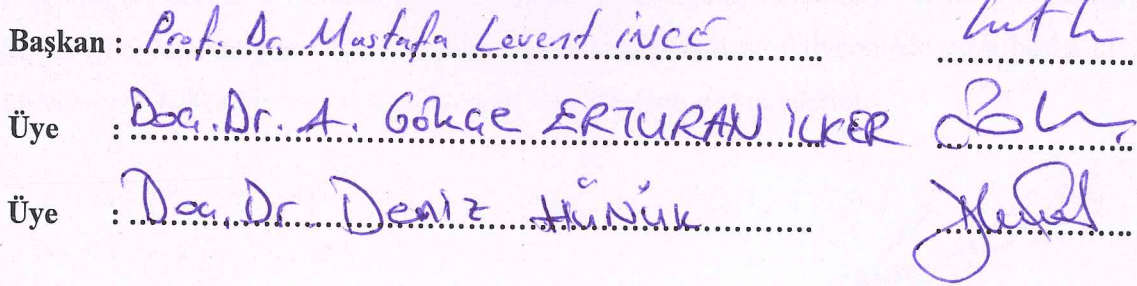 Başkan : Prof. Dr. Mustafa Levent İNCE
Üye : Doç. Dr. A. Gökçe ERTURAN İLKER
Üye : Doç. Dr. Deniz HÜNÜK